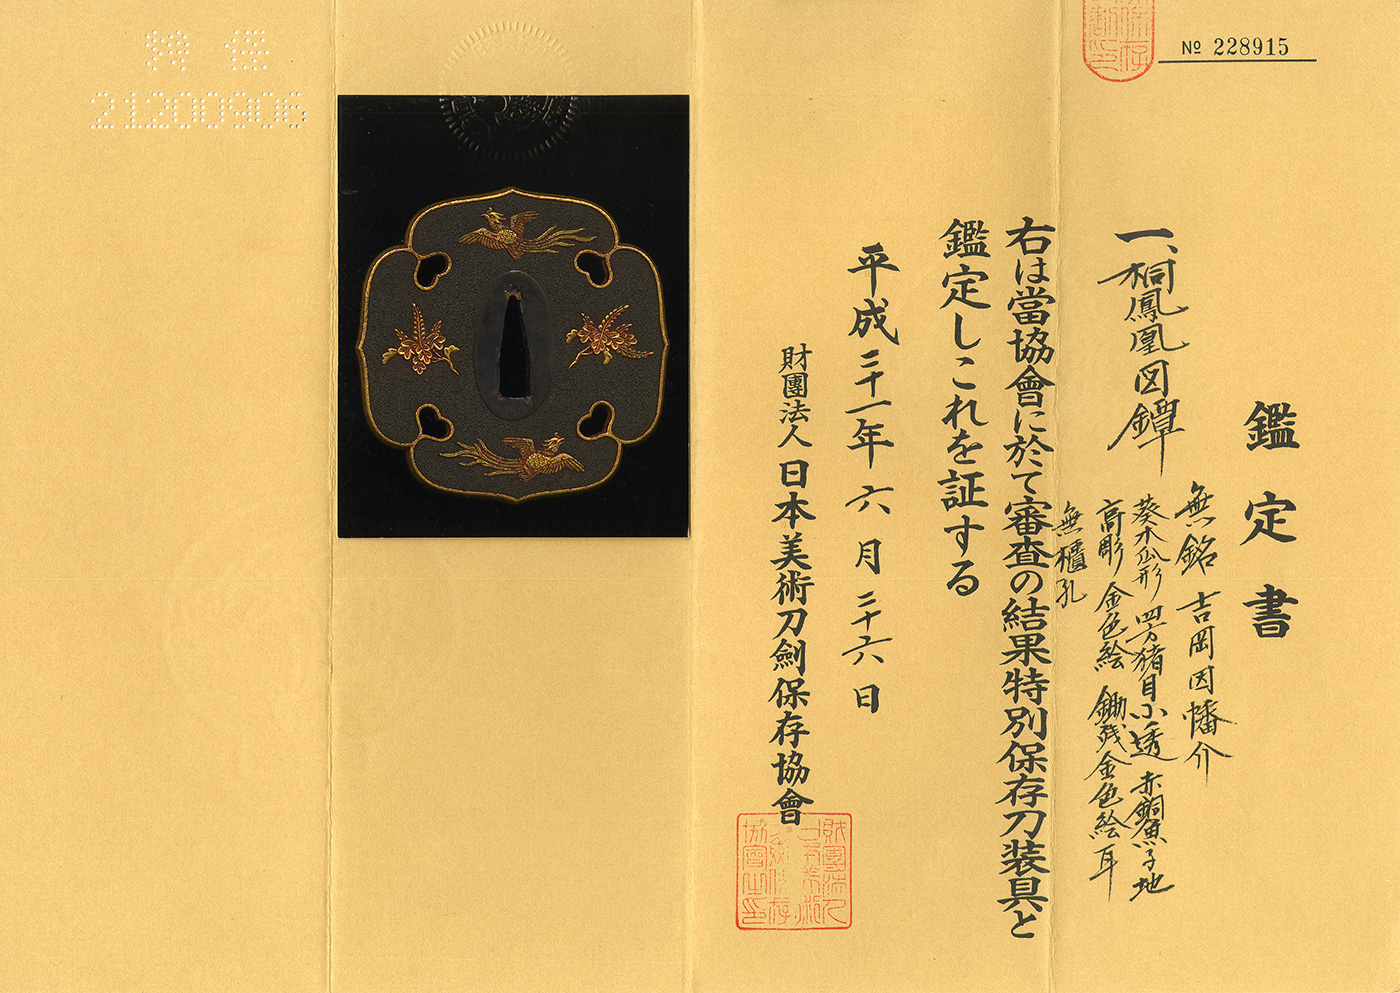 № 228915
鑑定書
一、桐鳳凰図鐔
無銘 吉岡因幡介
葵木瓜形 四方猪目小透 赤銅魚子地
高彫 金色絵 鋤残金色絵耳
無櫃孔
右は當協會に於て審査の結果特別保存刀装具と
鑑定しこれを証する
平成二十一年六月二十六日
財團法人日本美術刀劍保存協會
財團法人
日本美術
刀劍保存
協會之印
21200906